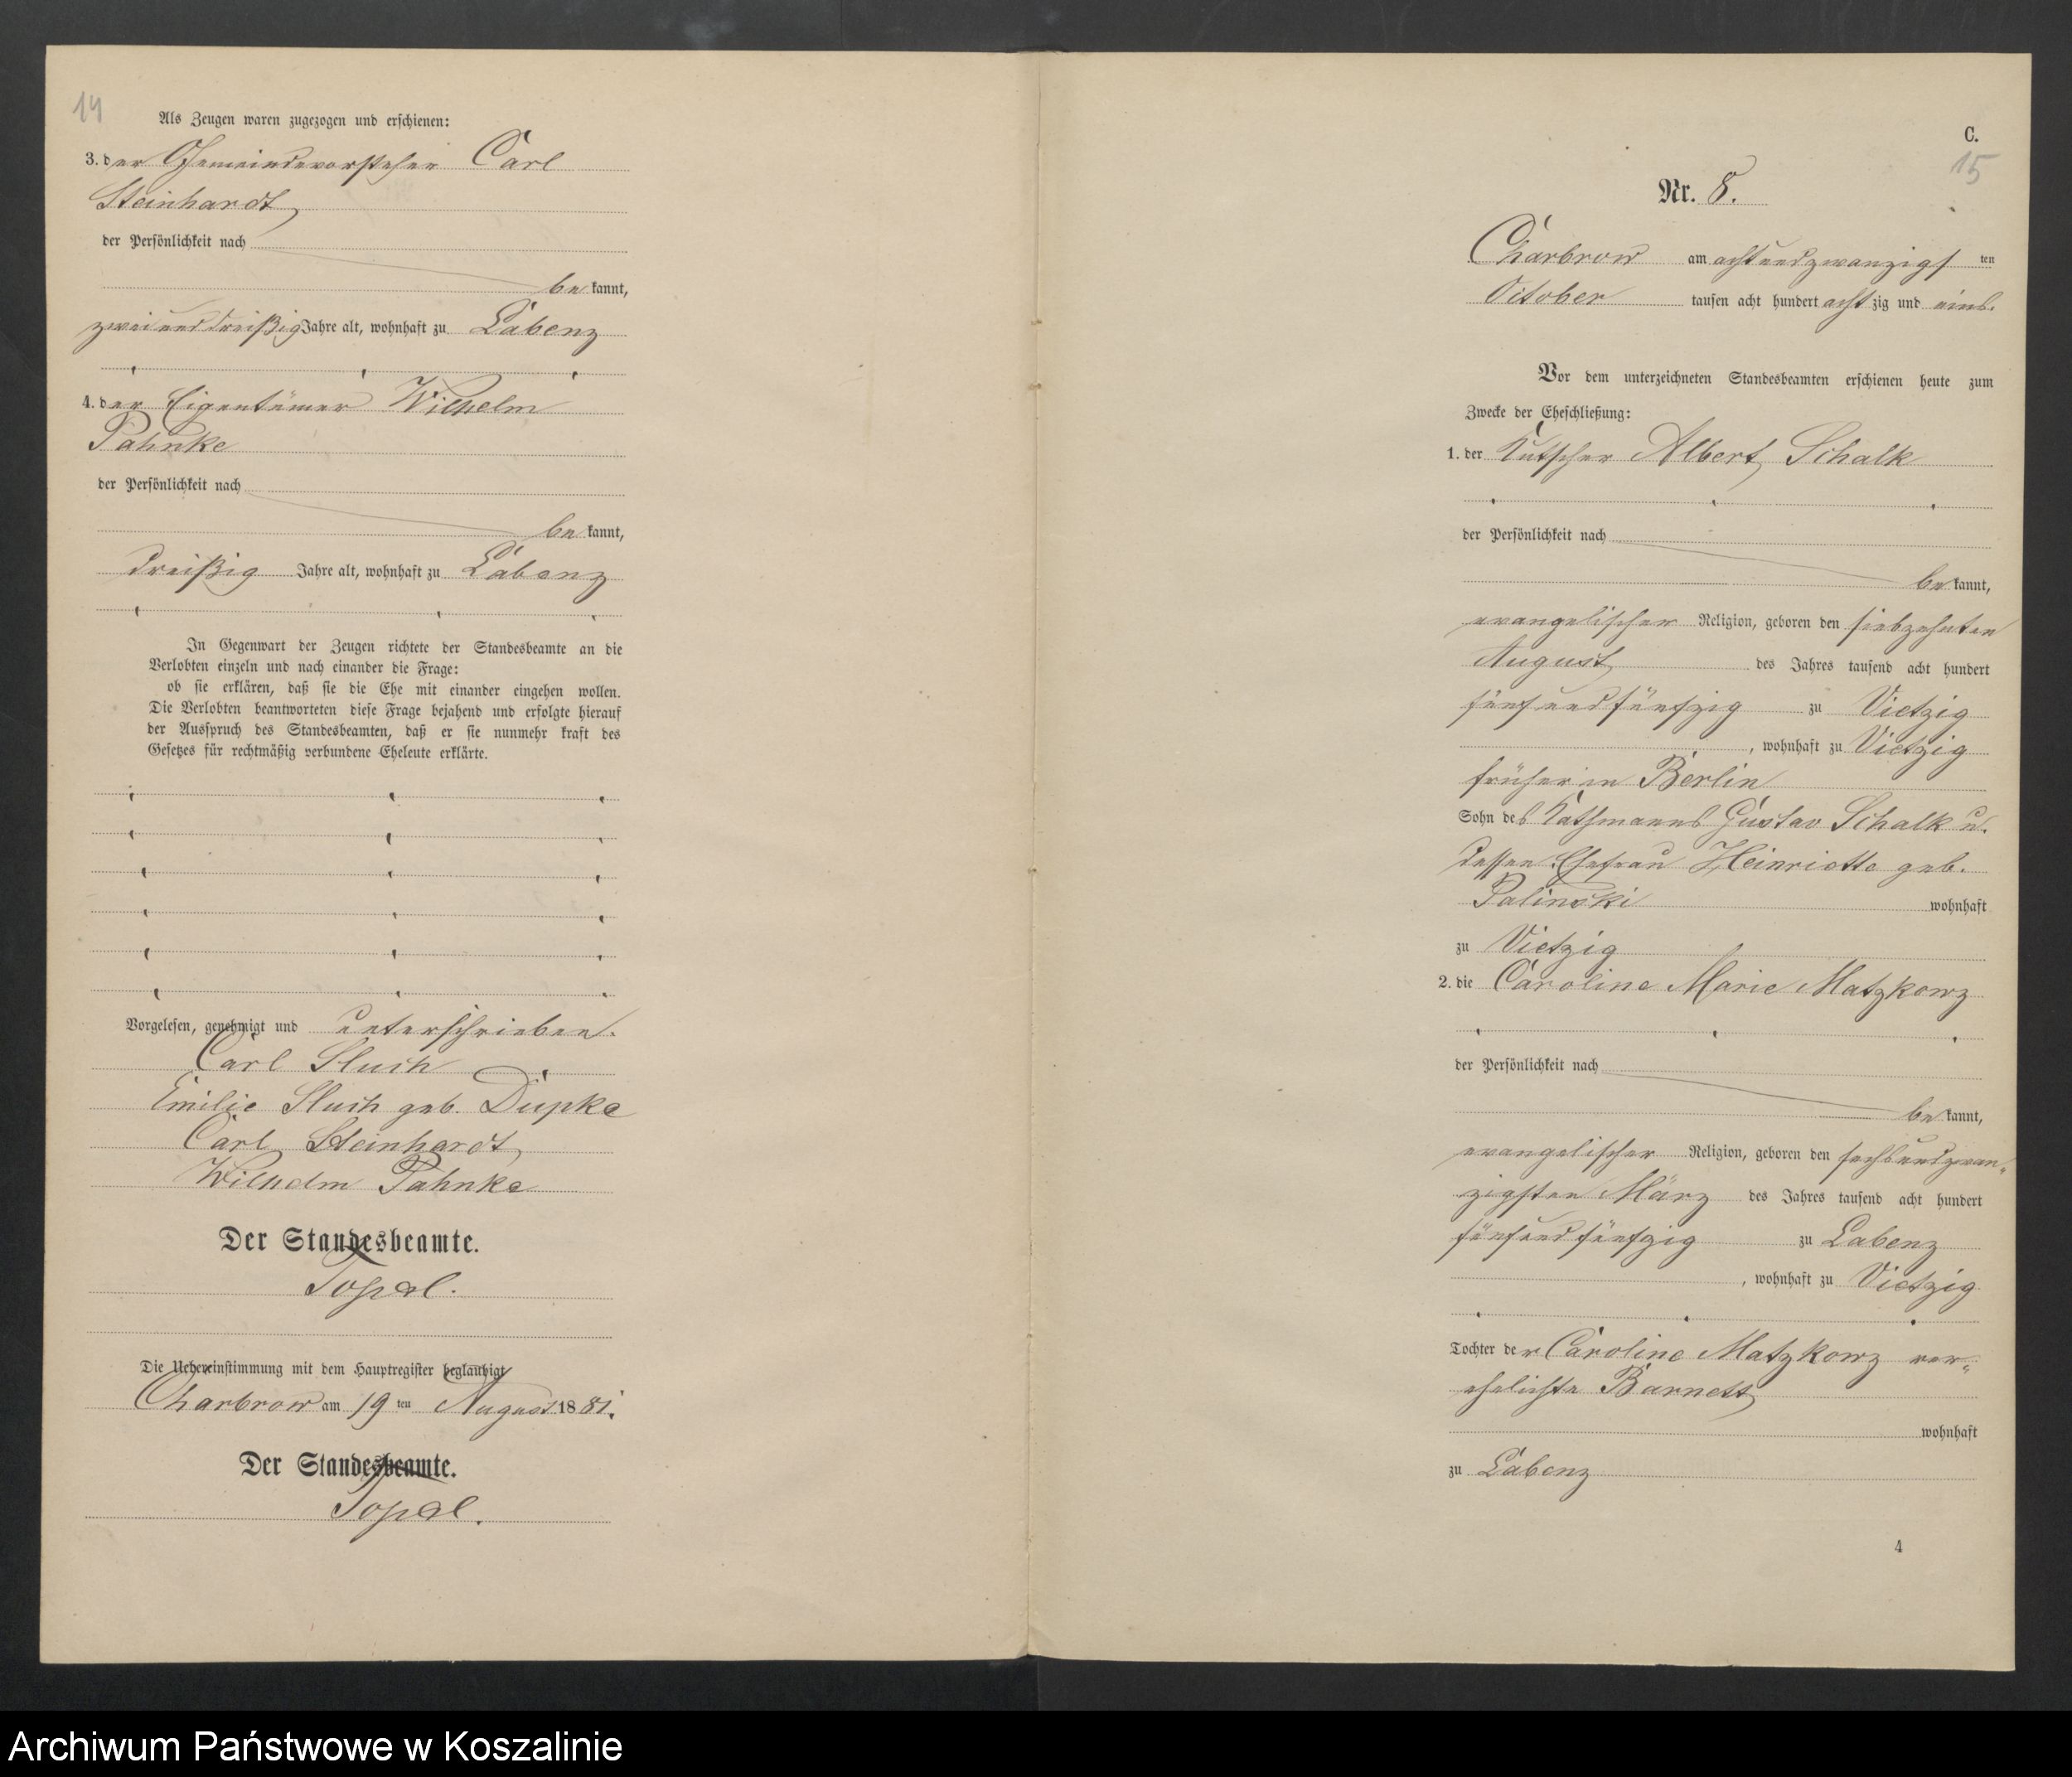 14
Als Zeugen waren zugezogen und erschienen:
3. der Gemeindevorsteher Carl
Steinhardt
der Persönlichkeit nach
bekannt,
zweiunddreißig Jahre alt, wohnhaft zu Labenz
4. der Eigentümer Wilhelm
Pahnke
der Persönlichkeit nach
bekannt,
dreißig Jahre alt, wohnhaft zu Labenz
In Gegenwart der Zeugen richtete der Standesbeamte an die
Verlobten einzeln und nach einander die Frage:
ob sie erklären, daß sie die Ehe mit einander eingehen wollen.
Die Verlobten beantworteten diese Frage bejahend und erfolgte hierauf
der Ausspruch des Standesbeamten, daß er sie nunmehr kraft des
Gesetzes für rechtmäßig verbundene Eheleute erklärte.
Vorgelesen, genehmigt und unterschrieben.
Carl
Emilie geb.
Carl Steinhardt
Wilhelm Pahnke
Der Standesbeamte.
Topel.
Die Uebereinstimmung mit dem Hauptregister beglaubigt
Charbrow am 19ten August 1881.
Der Standesbeamte.
Topel.
C.
15
Nr. 8.
Charbrow am achtundzwanzigsten
October tausen acht hundert achtzig und eins.
Vor dem unterzeichneten Standesbeamten erschienen heute zum
Zwecke der Eheschließung:
1. der Kutscher Albert Schalk
der Persönlichkeit nach
bekannt,
evangelischer Religion, geboren den siebzehnten
August des Jahres tausend acht hundert
fünfundfünfzig zu Vietzig
, wohnhaft zu Vietzig
früher in Berlin
Sohn des Kathmanns Gustav Schalk u.
dessen Ehefrau Heinriette geb.
Palinski wohnhaft
zu Vietzig
2. die Caroline Marie Matzkowz
der Persönlichkeit nach
bekannt,
evangelischer Religion, geboren den sechsundzwan-
zigsten März des Jahres tausend acht hundert
fünfundfünfzig zu Labenz
, wohnhaft zu Vietzig
Tochter der Caroline Matzkowz ver-
ehelichte Barnett
wohnhaft
zu Labenz
4
Archiwum Państwowe w Koszalinie